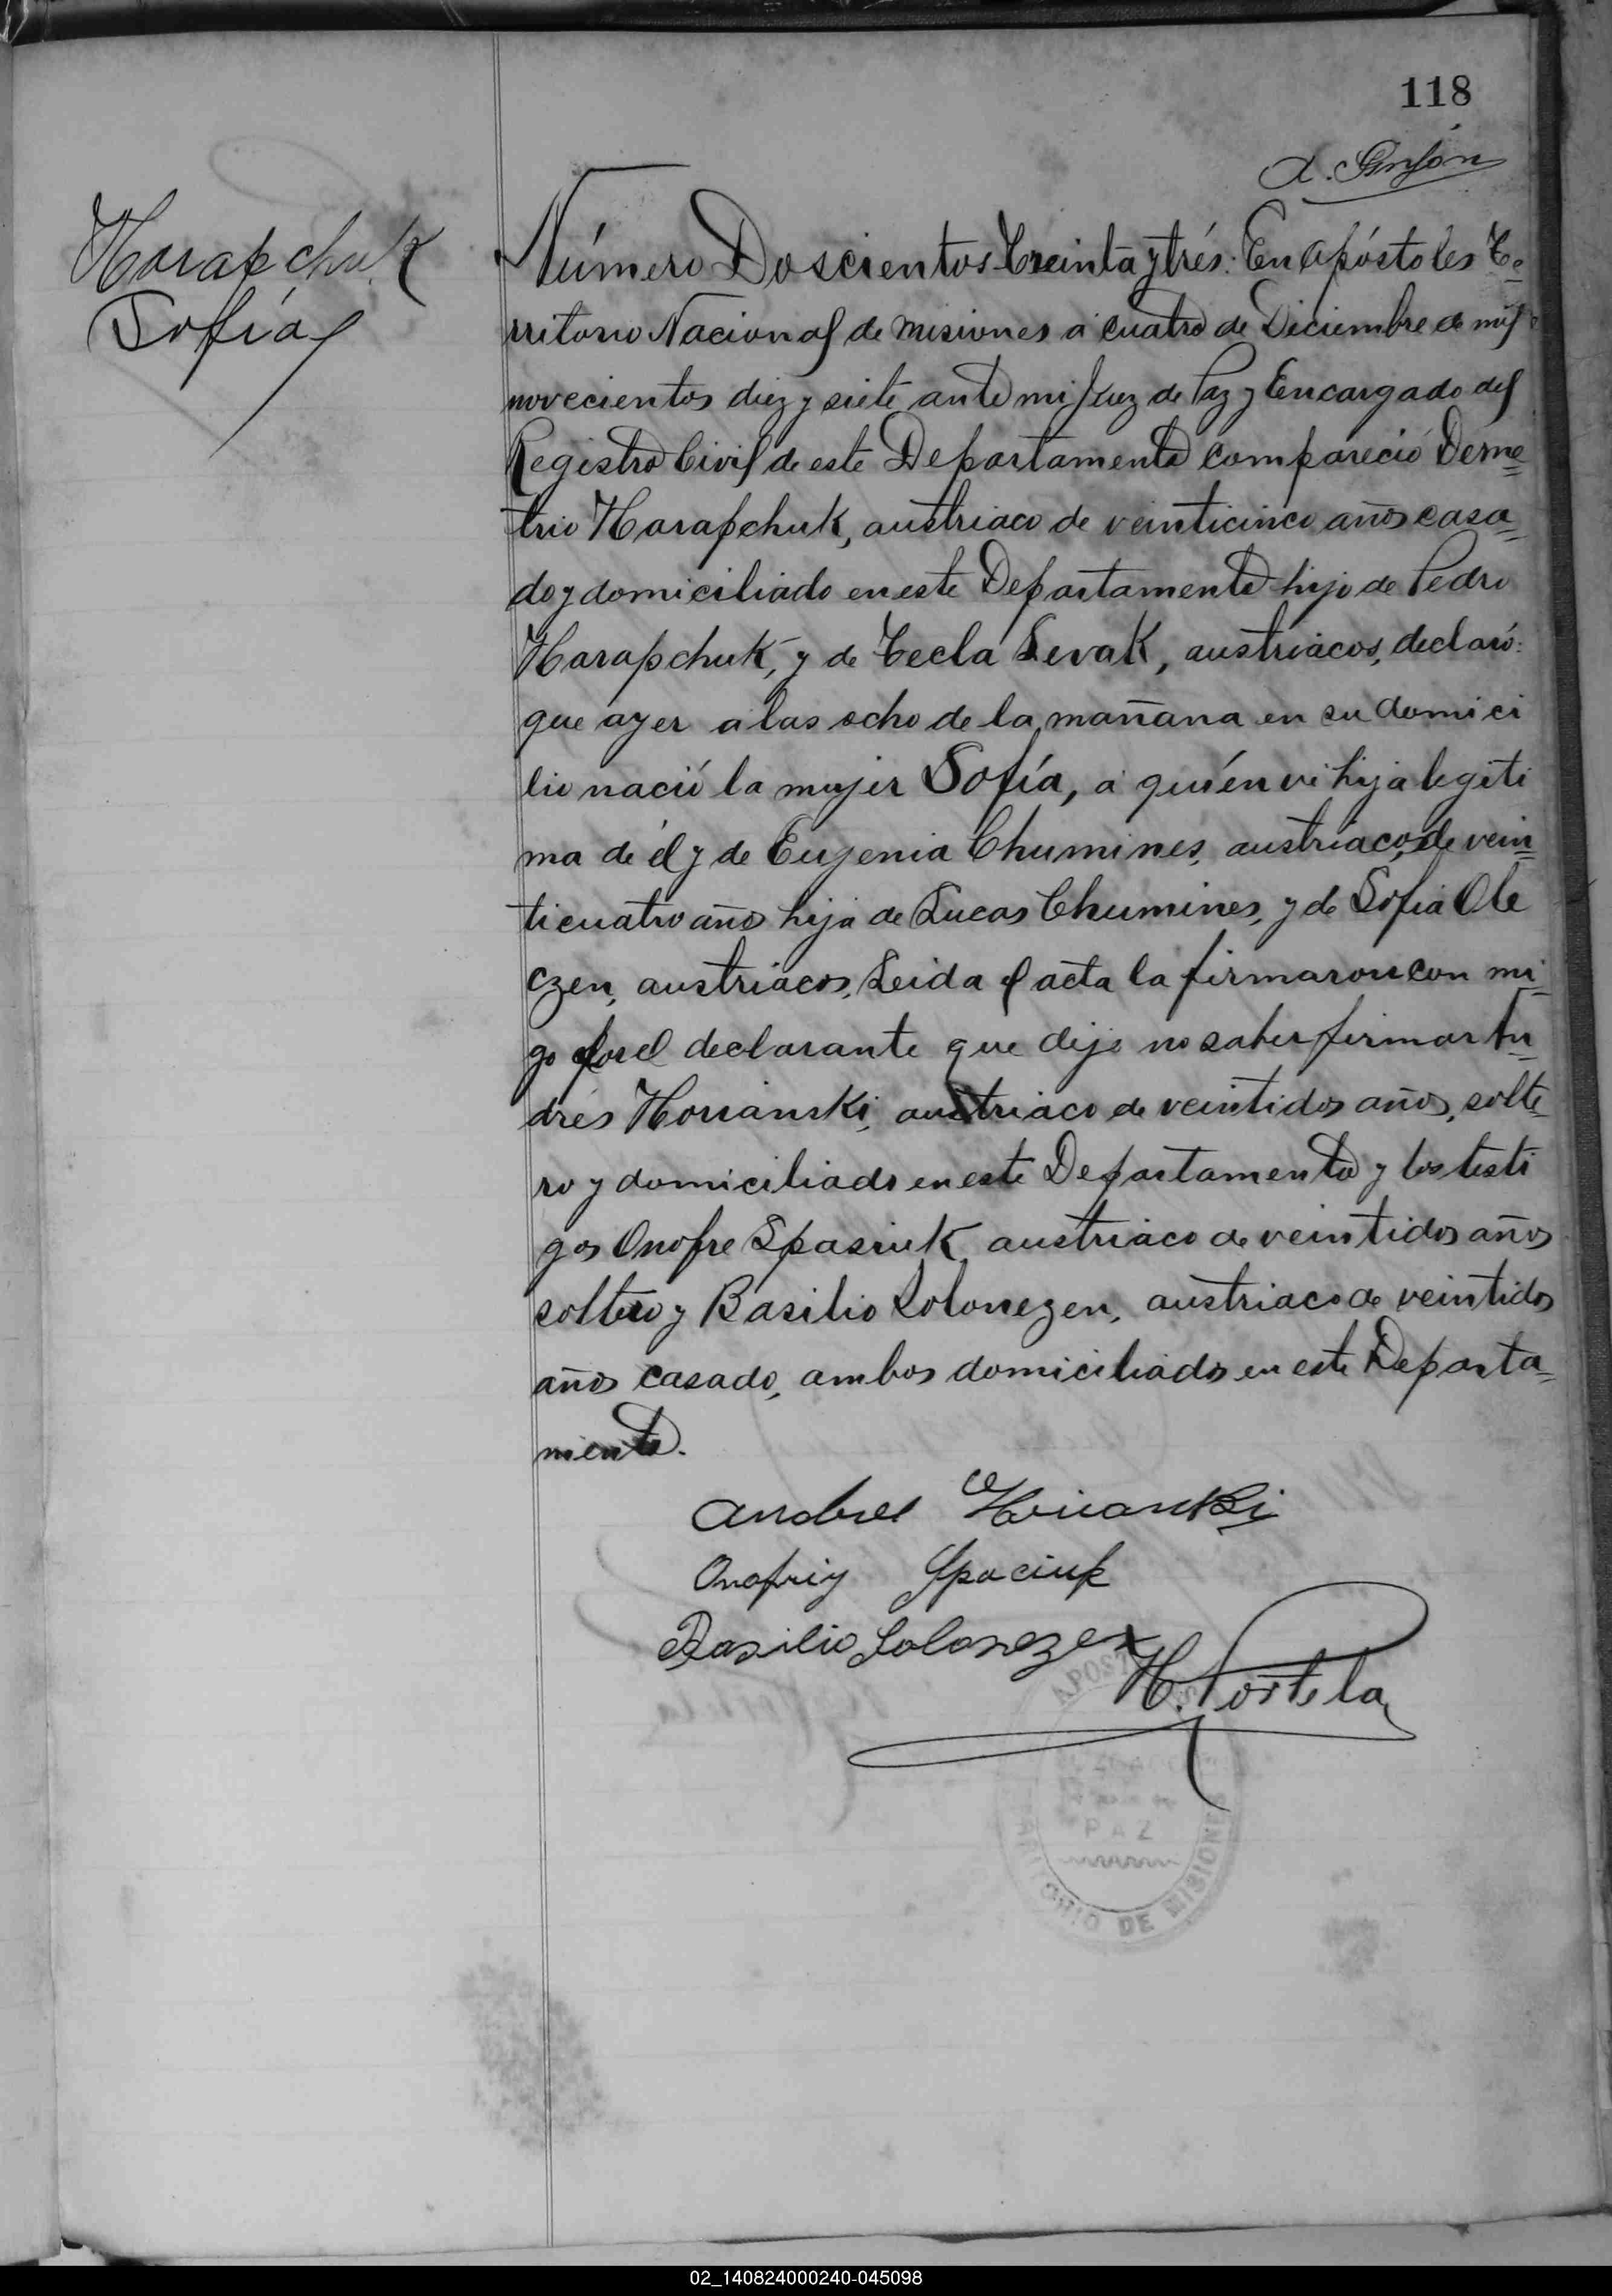 118
Harapchuk
Sofía
Número Doscientos Treinta y trés: En Apóstoles Te=
rritorio Nacional de Misiones á cuatro de Diciembre de mil
novecientos diez y siete ante mi Juez de Paz y Encargado del
Registro Civil de este Departamento compareció Deme=
trio Harapchuk, austriaco de veinticinco años casa=
do y domiciliado en este Departamento hijo de Pedro
Harapchuk, y de Tecla Sevak, austriacos, declaró:
que ayer a las ocho de la mañana en su domici
lio nació la mujer Sofía, á quién vi hija legiti
ma de él y de Eugenia Chumines, austriaco, de vein=
ticuatro años hija de Lucas Chumines, y de Sofia Ole
czen, austriacos, Leida el acta la firmaron con mi=
go por el declarante que dijo no saber firmar An=
drés Horianski, austriaco de veintidos años, solte=
ro y domiciliado en este Departamento y los testi
gos Onofre Spasiuk, austriaco de veintidos años
soltero y Basilio Solonezen, austriaco de veintidos
años casado, ambos domiciliados en este Departa=
mento.
Andres Horianski
Onofriy Spaciuk
Basilio Solonezen
H. Portela
PAZ
TERRITORIO DE MISIONES
02_140824000240-045098